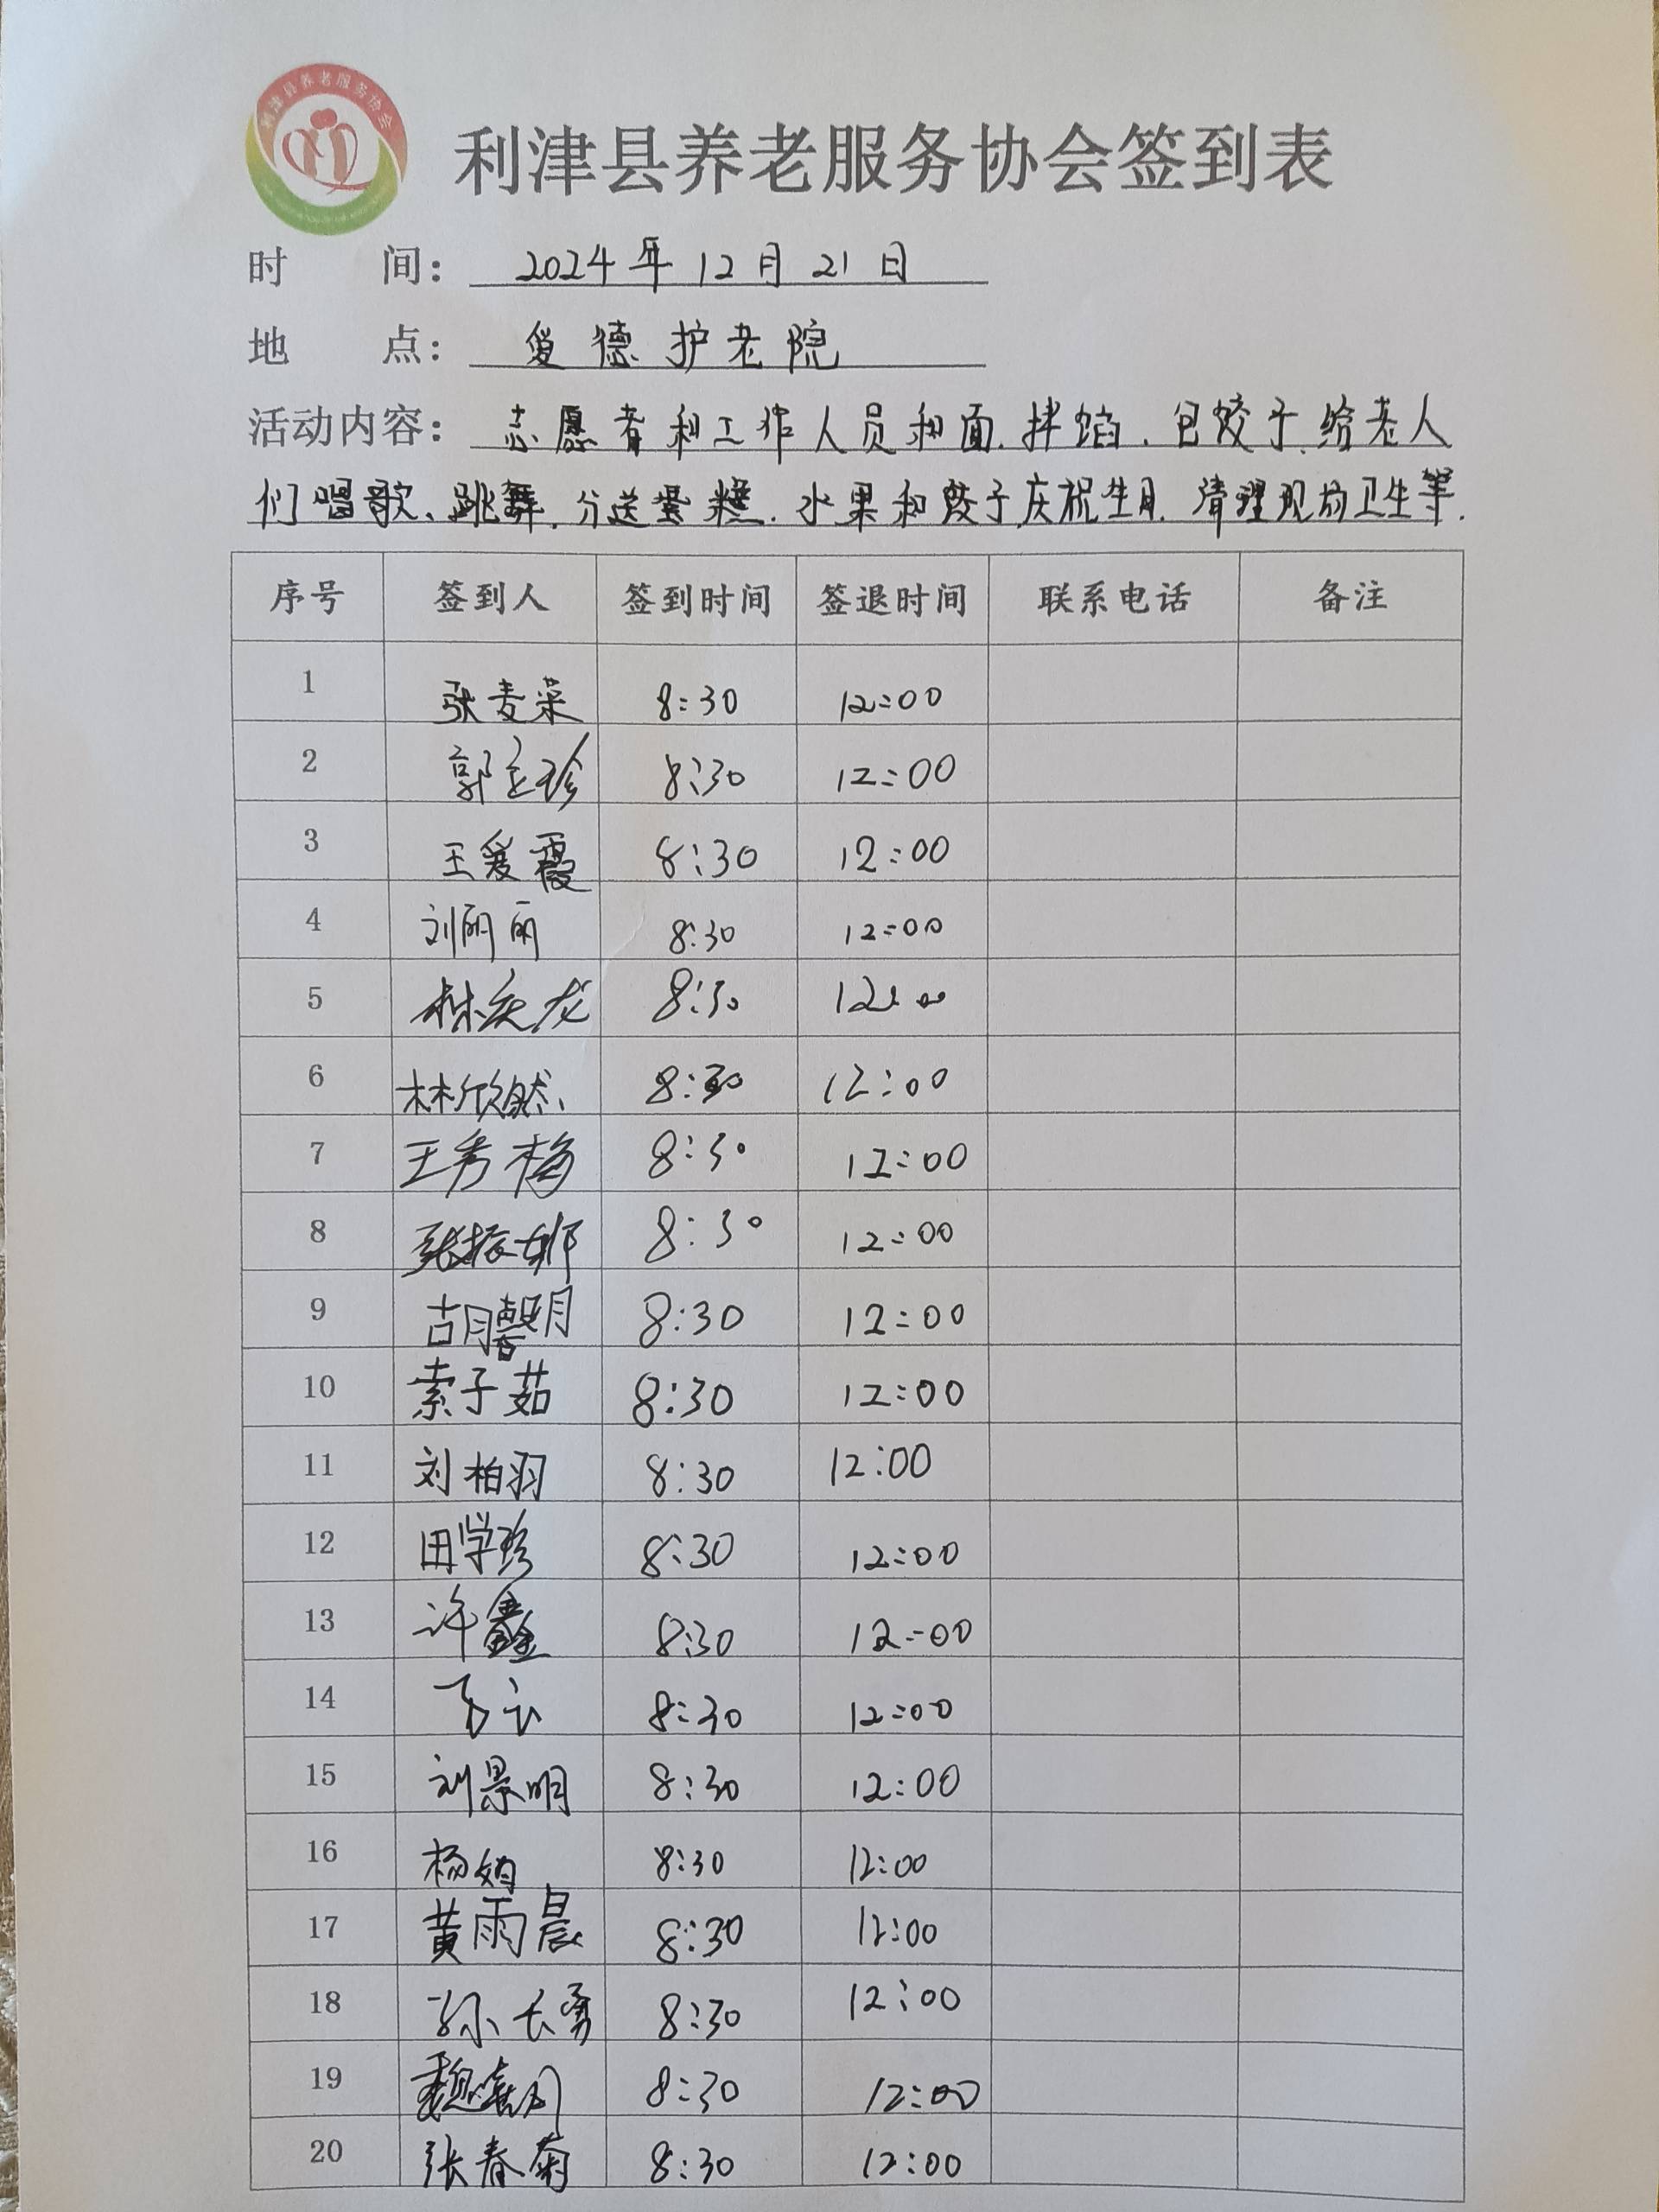 利津县养老服务协会
利津县养老服务协会签到表
时 间：2024年12月21日
地 点：爱德护老院
活动内容：志愿者和工作人员和面、拌馅、包饺子、给老人
们唱歌、跳舞、分送蛋糕、水果和饺子庆祝生日、清理现场卫生等.
序号 签到人 签到时间 签退时间 联系电话 备注
1 张麦菜 8:30 12:00
2 郭立珍 8:30 12:00
3 王爱霞 8:30 12:00
4 刘丽丽 8:30 12:00
5 林庆龙 8:30 12:00
6 林欣然 8:30 12:00
7 王秀梅 8:30 12:00
8 张振娜 8:30 12:00
9 胡馨月 8:30 12:00
10 索子茹 8:30 12:00
11 刘柏羽 8:30 12:00
12 田学珍 8:30 12:00
13 许鑫 8:30 12:00
14 8:30 12:00
15 刘景明 8:30 12:00
16 杨 8:30 12:00
17 黄雨晨 8:30 12:00
18 孙长勇 8:30 12:00
19 魏 8:30 12:00
20 张春菊 8:30 12:00